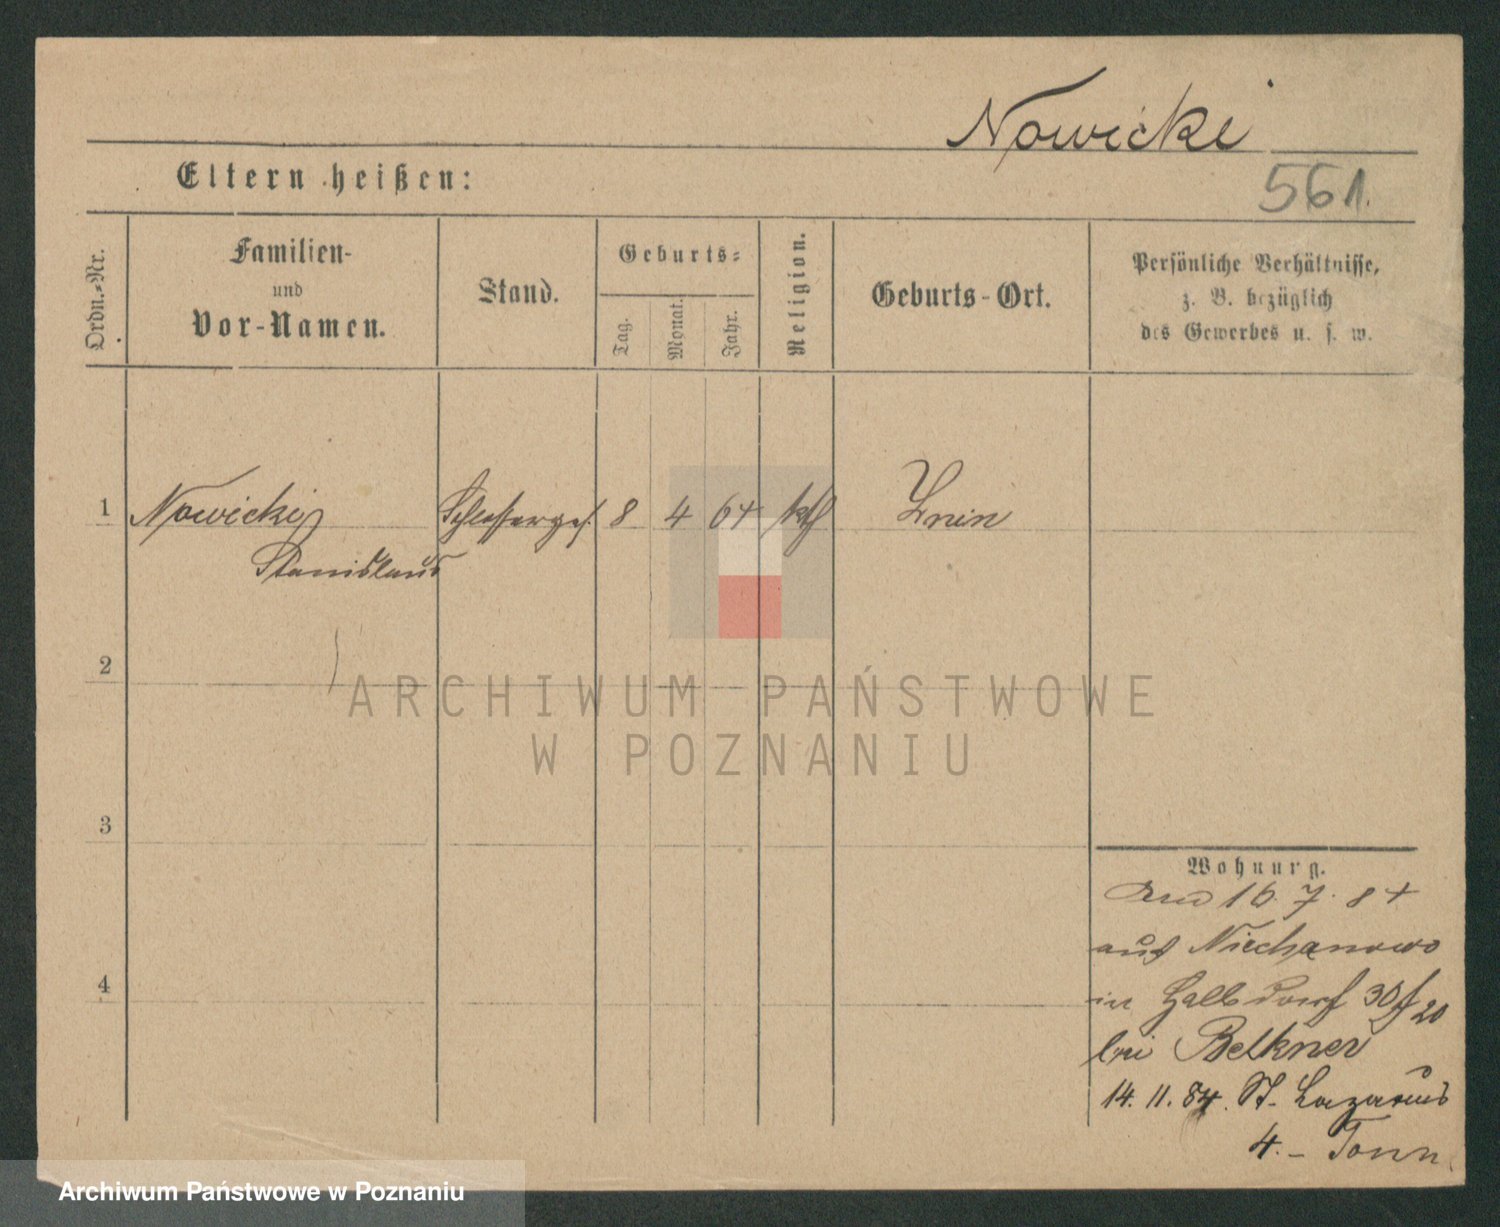 Nowicki
561.
Eltern heißen:
Ordn.-Nr.
Familien-
und
Vor-Namen.
Stand.
Geburts-
Tag.
Monat.
Jahr.
Religion.
Geburts-Ort.
Persönliche Verhältnisse,
z. B. bezüglich
des Gewerbes u. s. w.
1 Nowicki Schlosserges. 8 4 64 kth Znin
Stanislaus
2
3
4
Wohnung.
16. 7. 84
aus Niechanowo
in Halbdorf 30 20
bei Belkner
14. 11. 84. St. Lazarus
4. - Tonn
ARCHIWUM PAŃSTWOWE
W POZNANIU
Archiwum Państwowe w Poznaniu